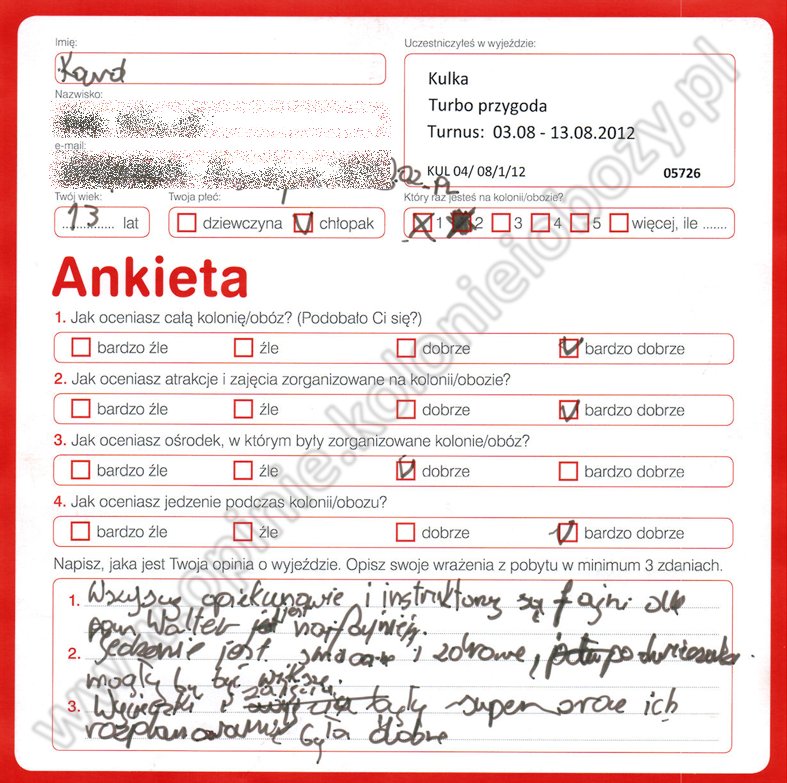 Imię:
Uczestniczyłeś w wyjeździe:
Karol
Kulka
Turbo przygoda
Turnus: 03.08 - 13.08.2012
KUL 04/ 08/1/12 05726
Nazwisko:
e-mail:
Twój wiek:
Twoja płeć:
Który raz jesteś na kolonii/obozie?
13 lat
dziewczyna chłopak
1 2 3 4 5 więcej, ile .......
Ankieta
1. Jak oceniasz całą kolonię/obóz? (Podobało Ci się?)
bardzo źle źle dobrze bardzo dobrze
2. Jak oceniasz atrakcje i zajęcia zorganizowane na kolonii/obozie?
bardzo źle źle dobrze bardzo dobrze
3. Jak oceniasz ośrodek, w którym były zorganizowane kolonie/obóz?
bardzo źle źle dobrze bardzo dobrze
4. Jak oceniasz jedzenie podczas kolonii/obozu?
bardzo źle źle dobrze bardzo dobrze
Napisz, jaka jest Twoja opinia o wyjeździe. Opisz swoje wrażenia z pobytu w minimum 3 zdaniach.
1. Wszyscy opiekunowie i instruktorzy są fajni ale
pan Walter jest najfajniejszy.
2. Jedzenie jest smaczne i zdrowe,
mogły by być większe.
3. Wycieczki i zajęcia były super oraz ich
rozplanowanie była dobre
www.opinie.kolonieiobozy.pl